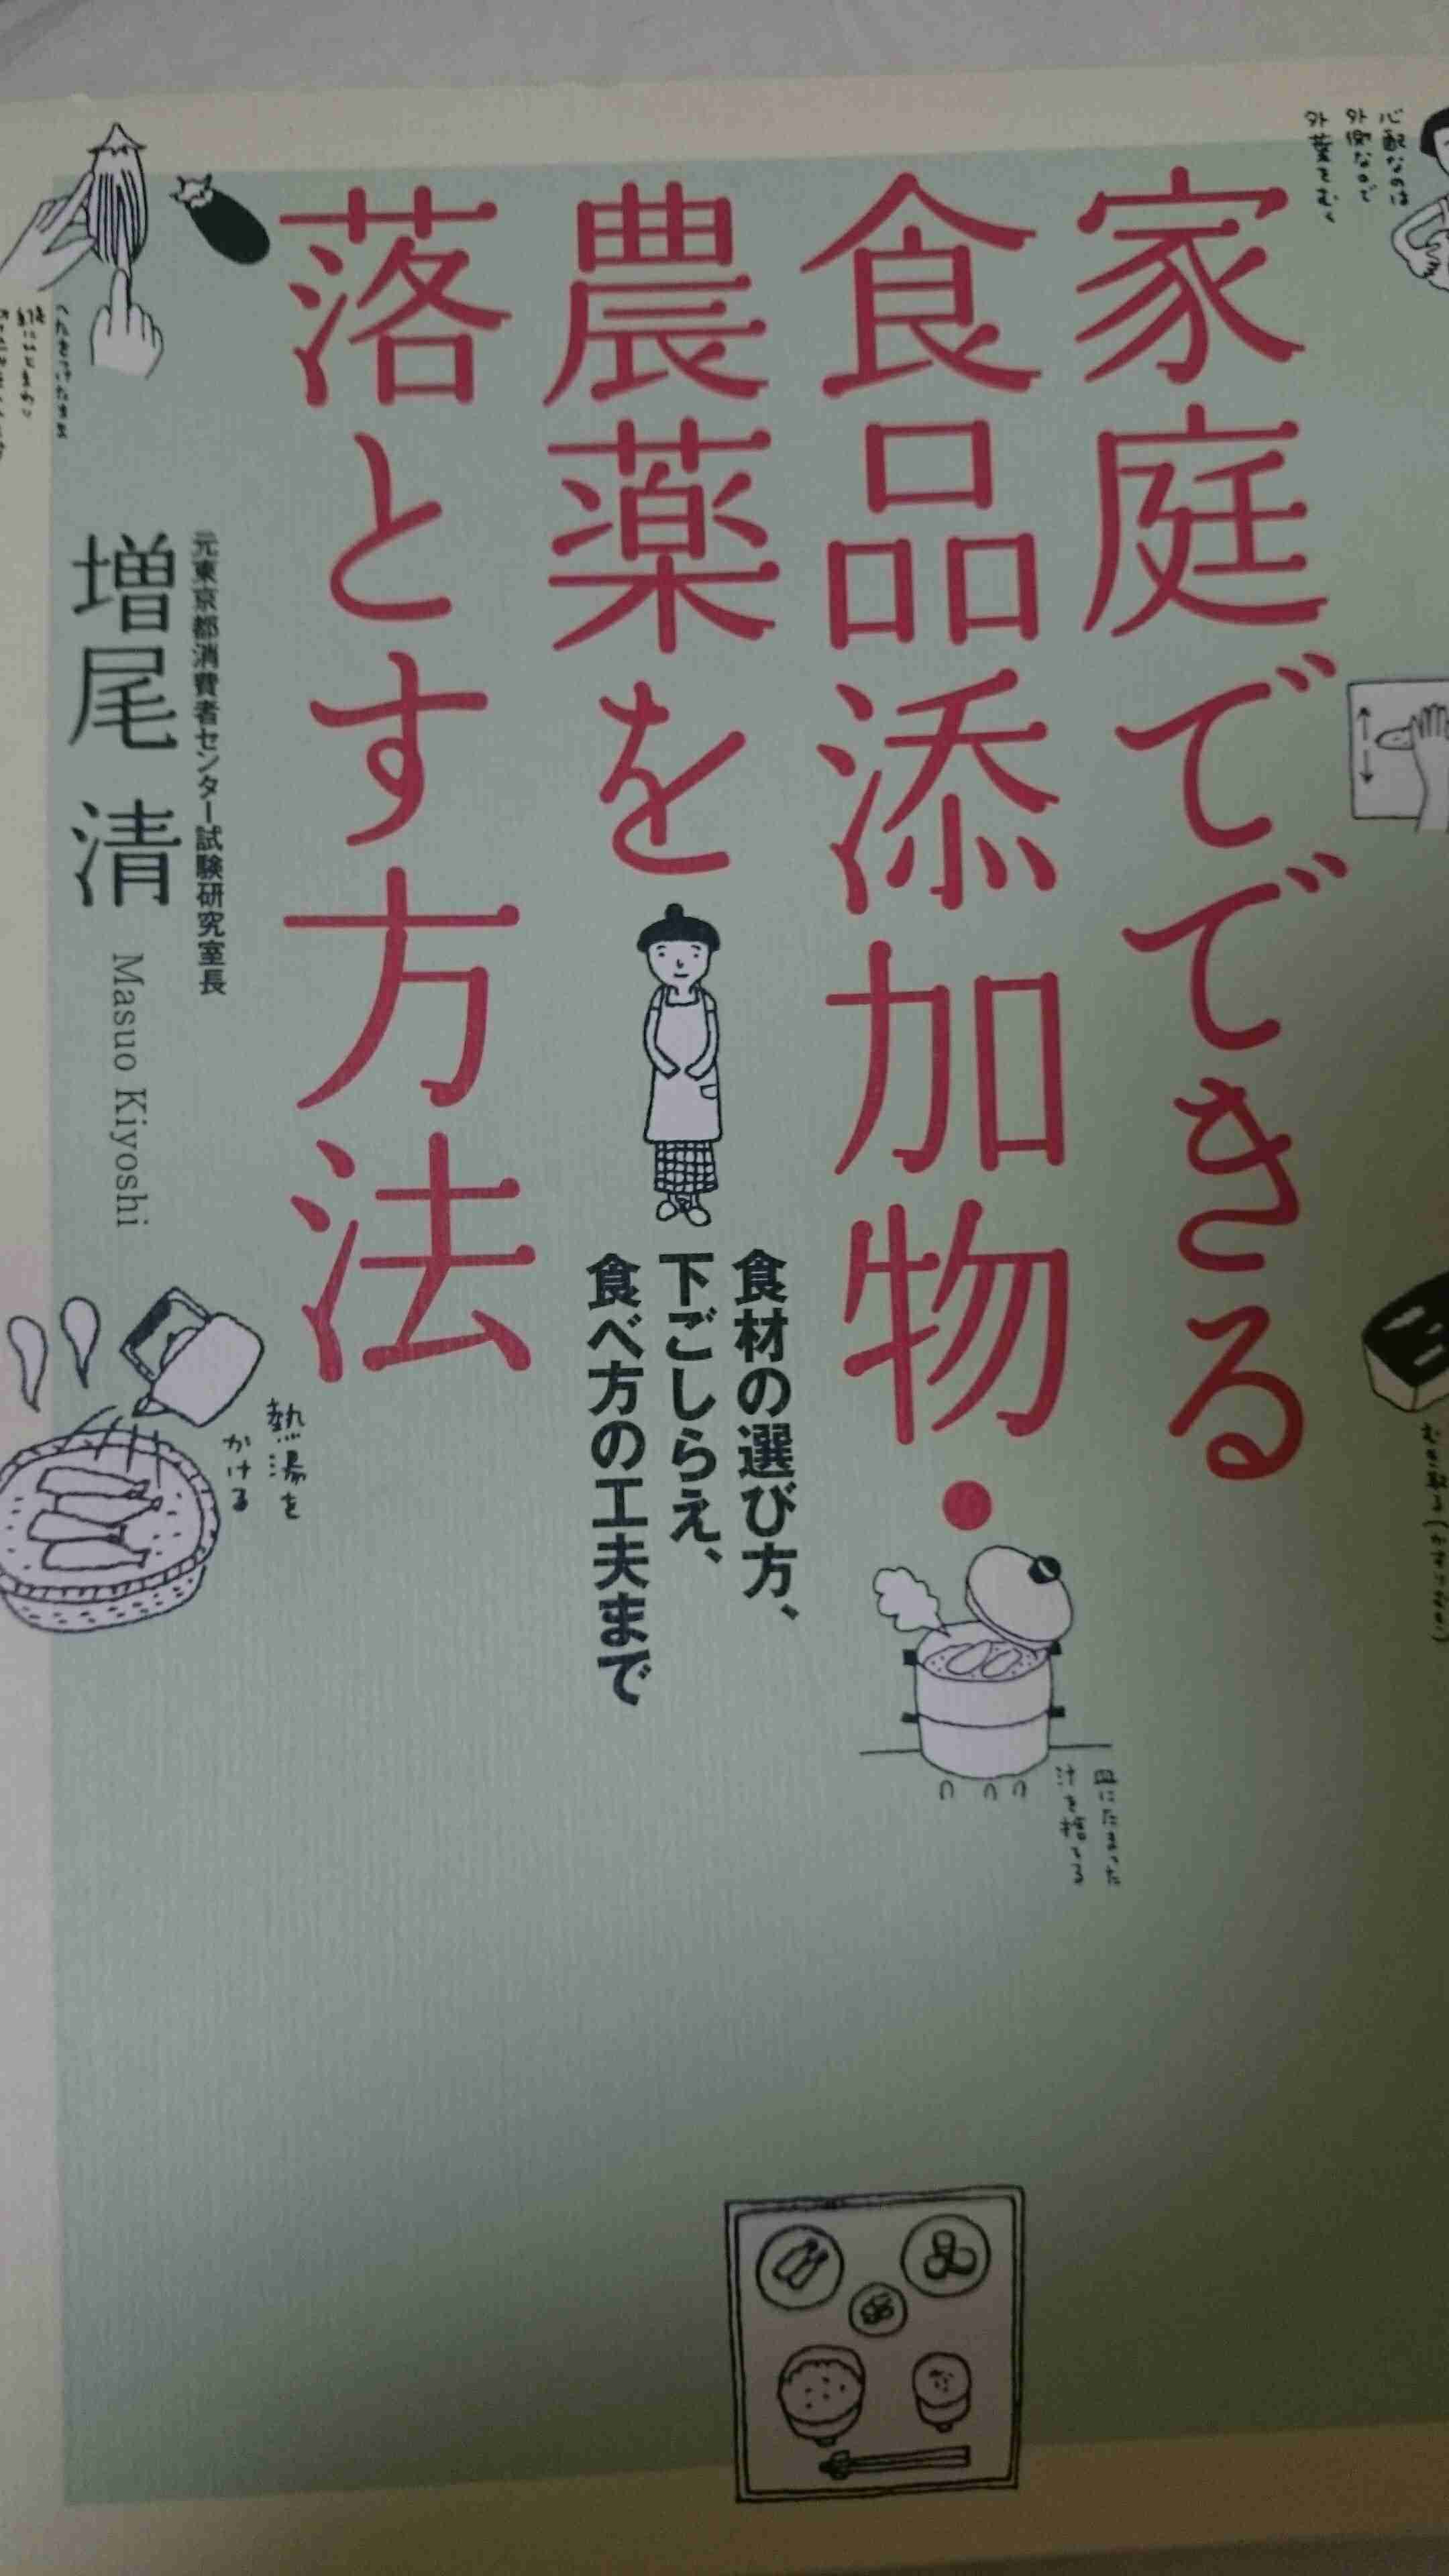 家庭でできる
食品添加物・
農薬を
落とす方法
食材の選び方、
下ごしらえ、
食べ方の工夫まで
元東京都消費者センター試験研究室長
増尾 清
Masuo Kiyoshi
心配なのは
外側なので
外葉をむく
熱湯を
かける
皿にたまった
汁を捨てる